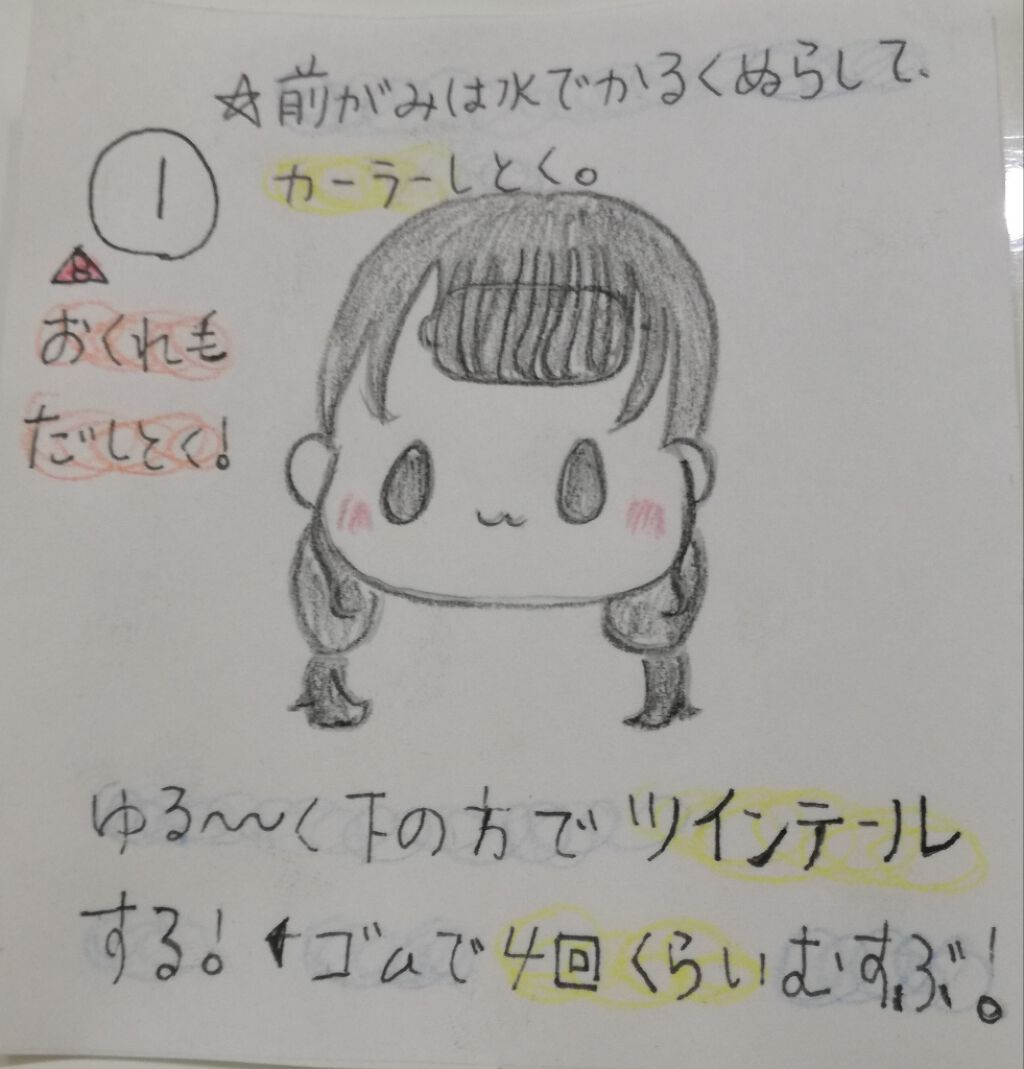 ☆前がみは水でかるくぬらして、
カーラーしとく。
1
おくれも
だしとく!
ゆる〜〜く下の方でツインテール
する!←ゴムで4回くらいむすぶ!。